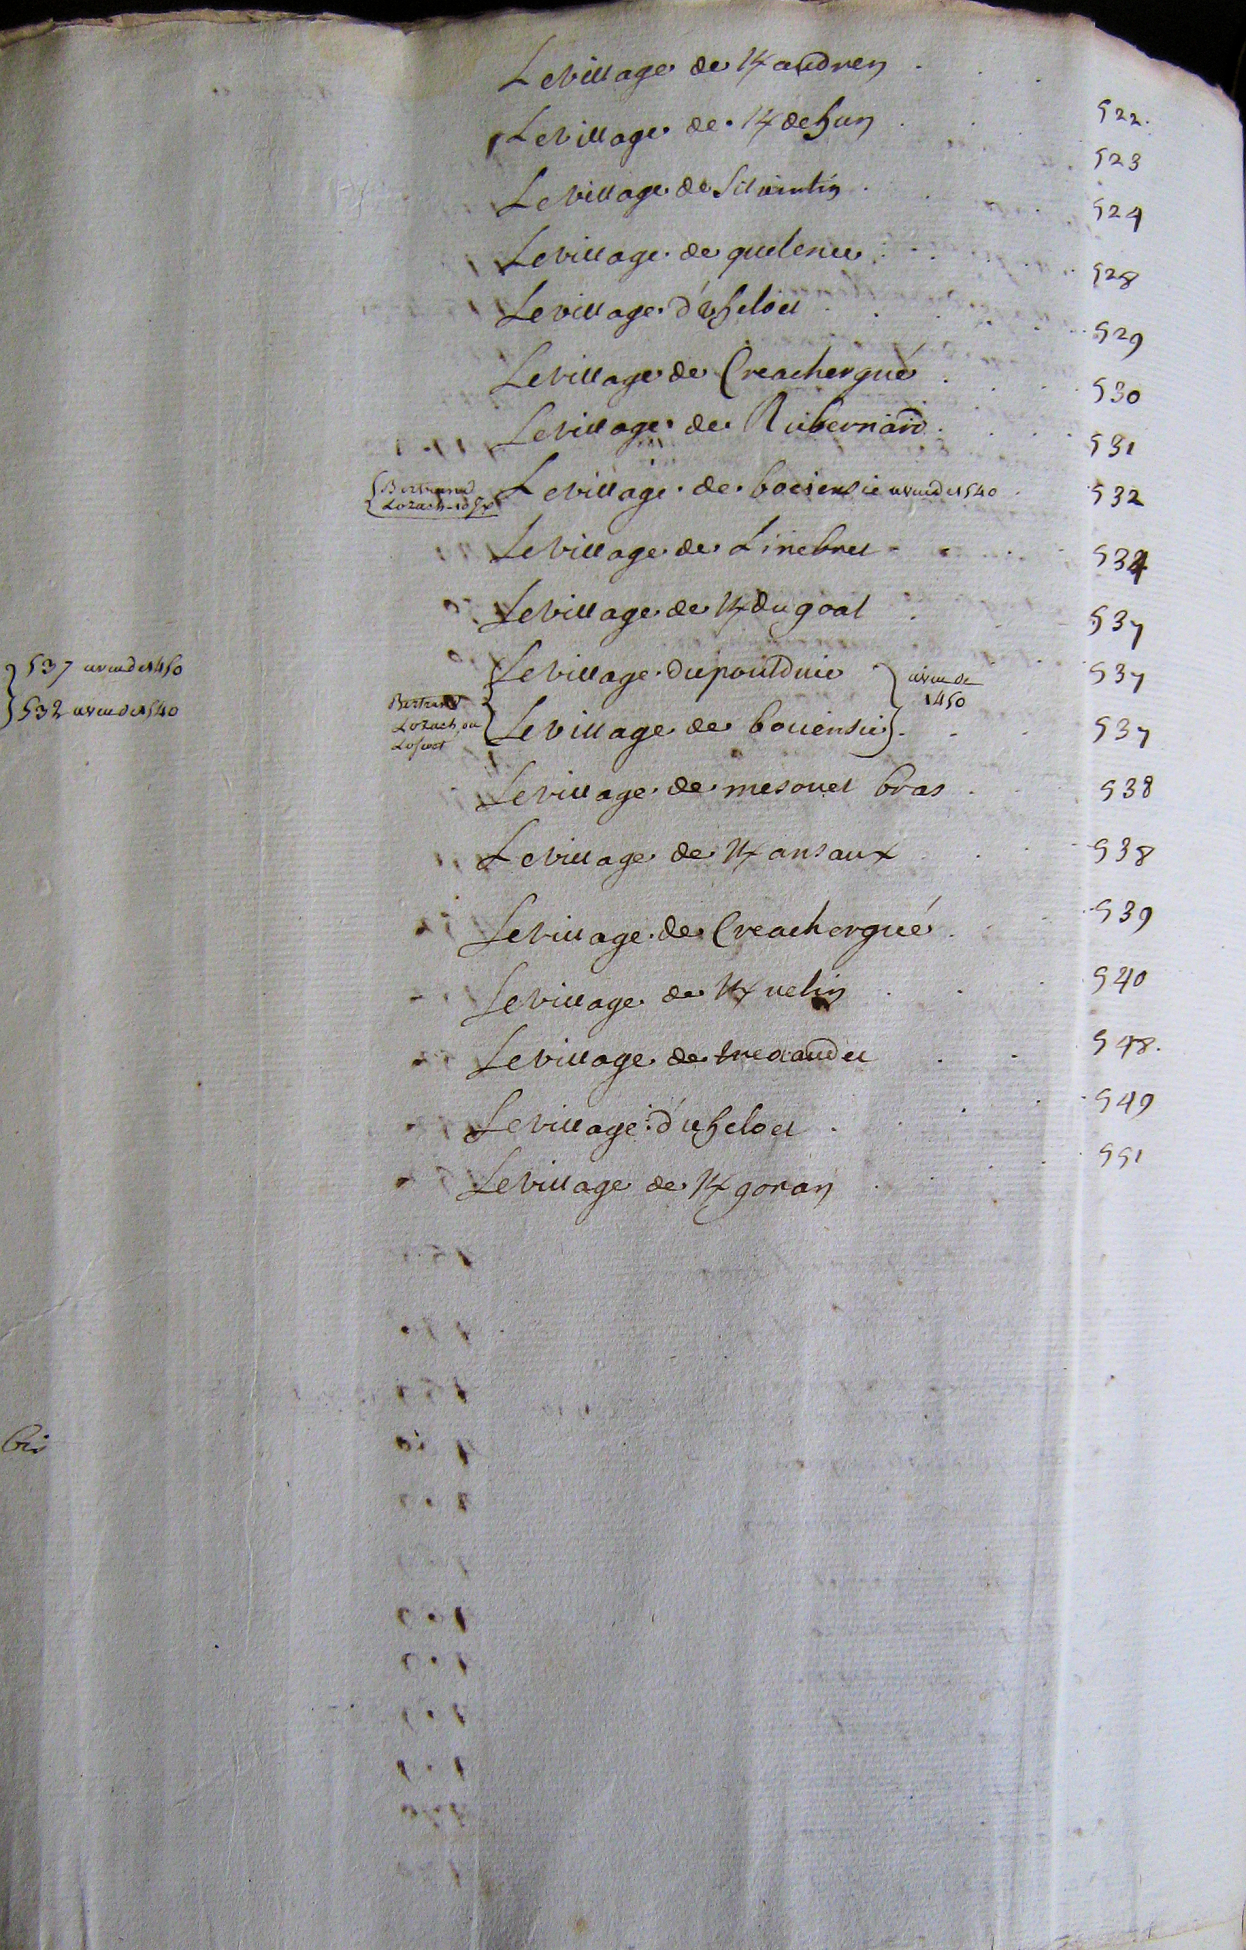 Le village de K/andren 522
Le village de K/dehun 523
Le village de Silvintin 524
Le village de quelenec 528
Le village d'uheloet 529
Le village de Creachergué 530
Le village de Rubernard 531
{Bertrand Le village de boeiensie aveu de 1540 532
Lozach
Le village de Linebret 534
Le village de K/dugoal 537
{537 aveu de 1450 Le village du pouldvie } aveu de 1450 537
{532 aveu de 1540 Bertrand Lozach ou Le village de bouiensie} 537
Le village de mesouet bras 538
Le village de K/ansaux 538
Le village de Creachergué 539
Le village de K/velin 540
Le village de treaudet 548
Le village d'uheloet 549
Le village de K/goran 551
bis